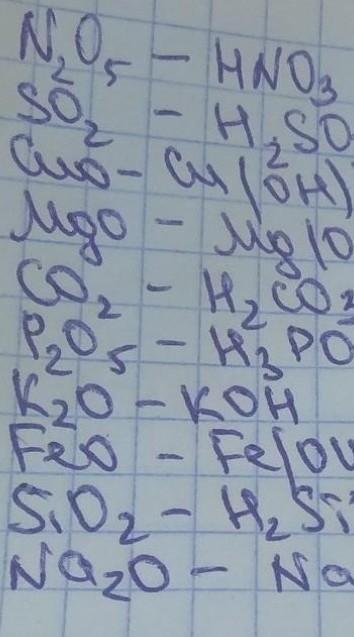 N₂O₅ – HNO₃
SO₂ – H₂SO
CuO – Cu(OH)
MgO – Mg(O
CO₂ – H₂CO₃
P₂O₅ – H₃PO
K₂O – KOH
FeO – Fe(OH
SiO₂ – H₂Si
Na₂O – Na